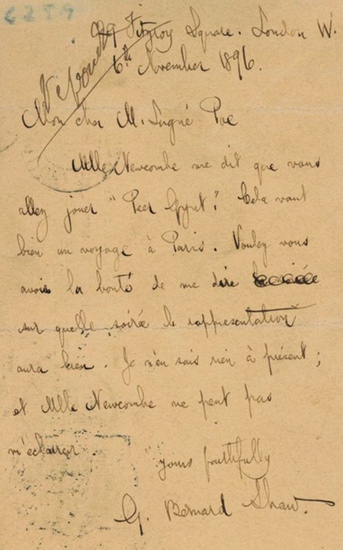 C259
29 Fitzroy Square. London W.
6th November 1896.
Mon cher M. Lugné Poe
Mlle Newcombe me dit que vous
allez jouer "Peer Gynt". Cela vaut
bien un voyage à Paris. Voulez vous
avoir la bonté de me dire
sur quelle soirée le rappresentation
aura lieu. Je n'en sais rien à présent;
et Mlle Newcombe ne peut pas
m'eclairer.
yours faithfully
G. Bernard Shaw.